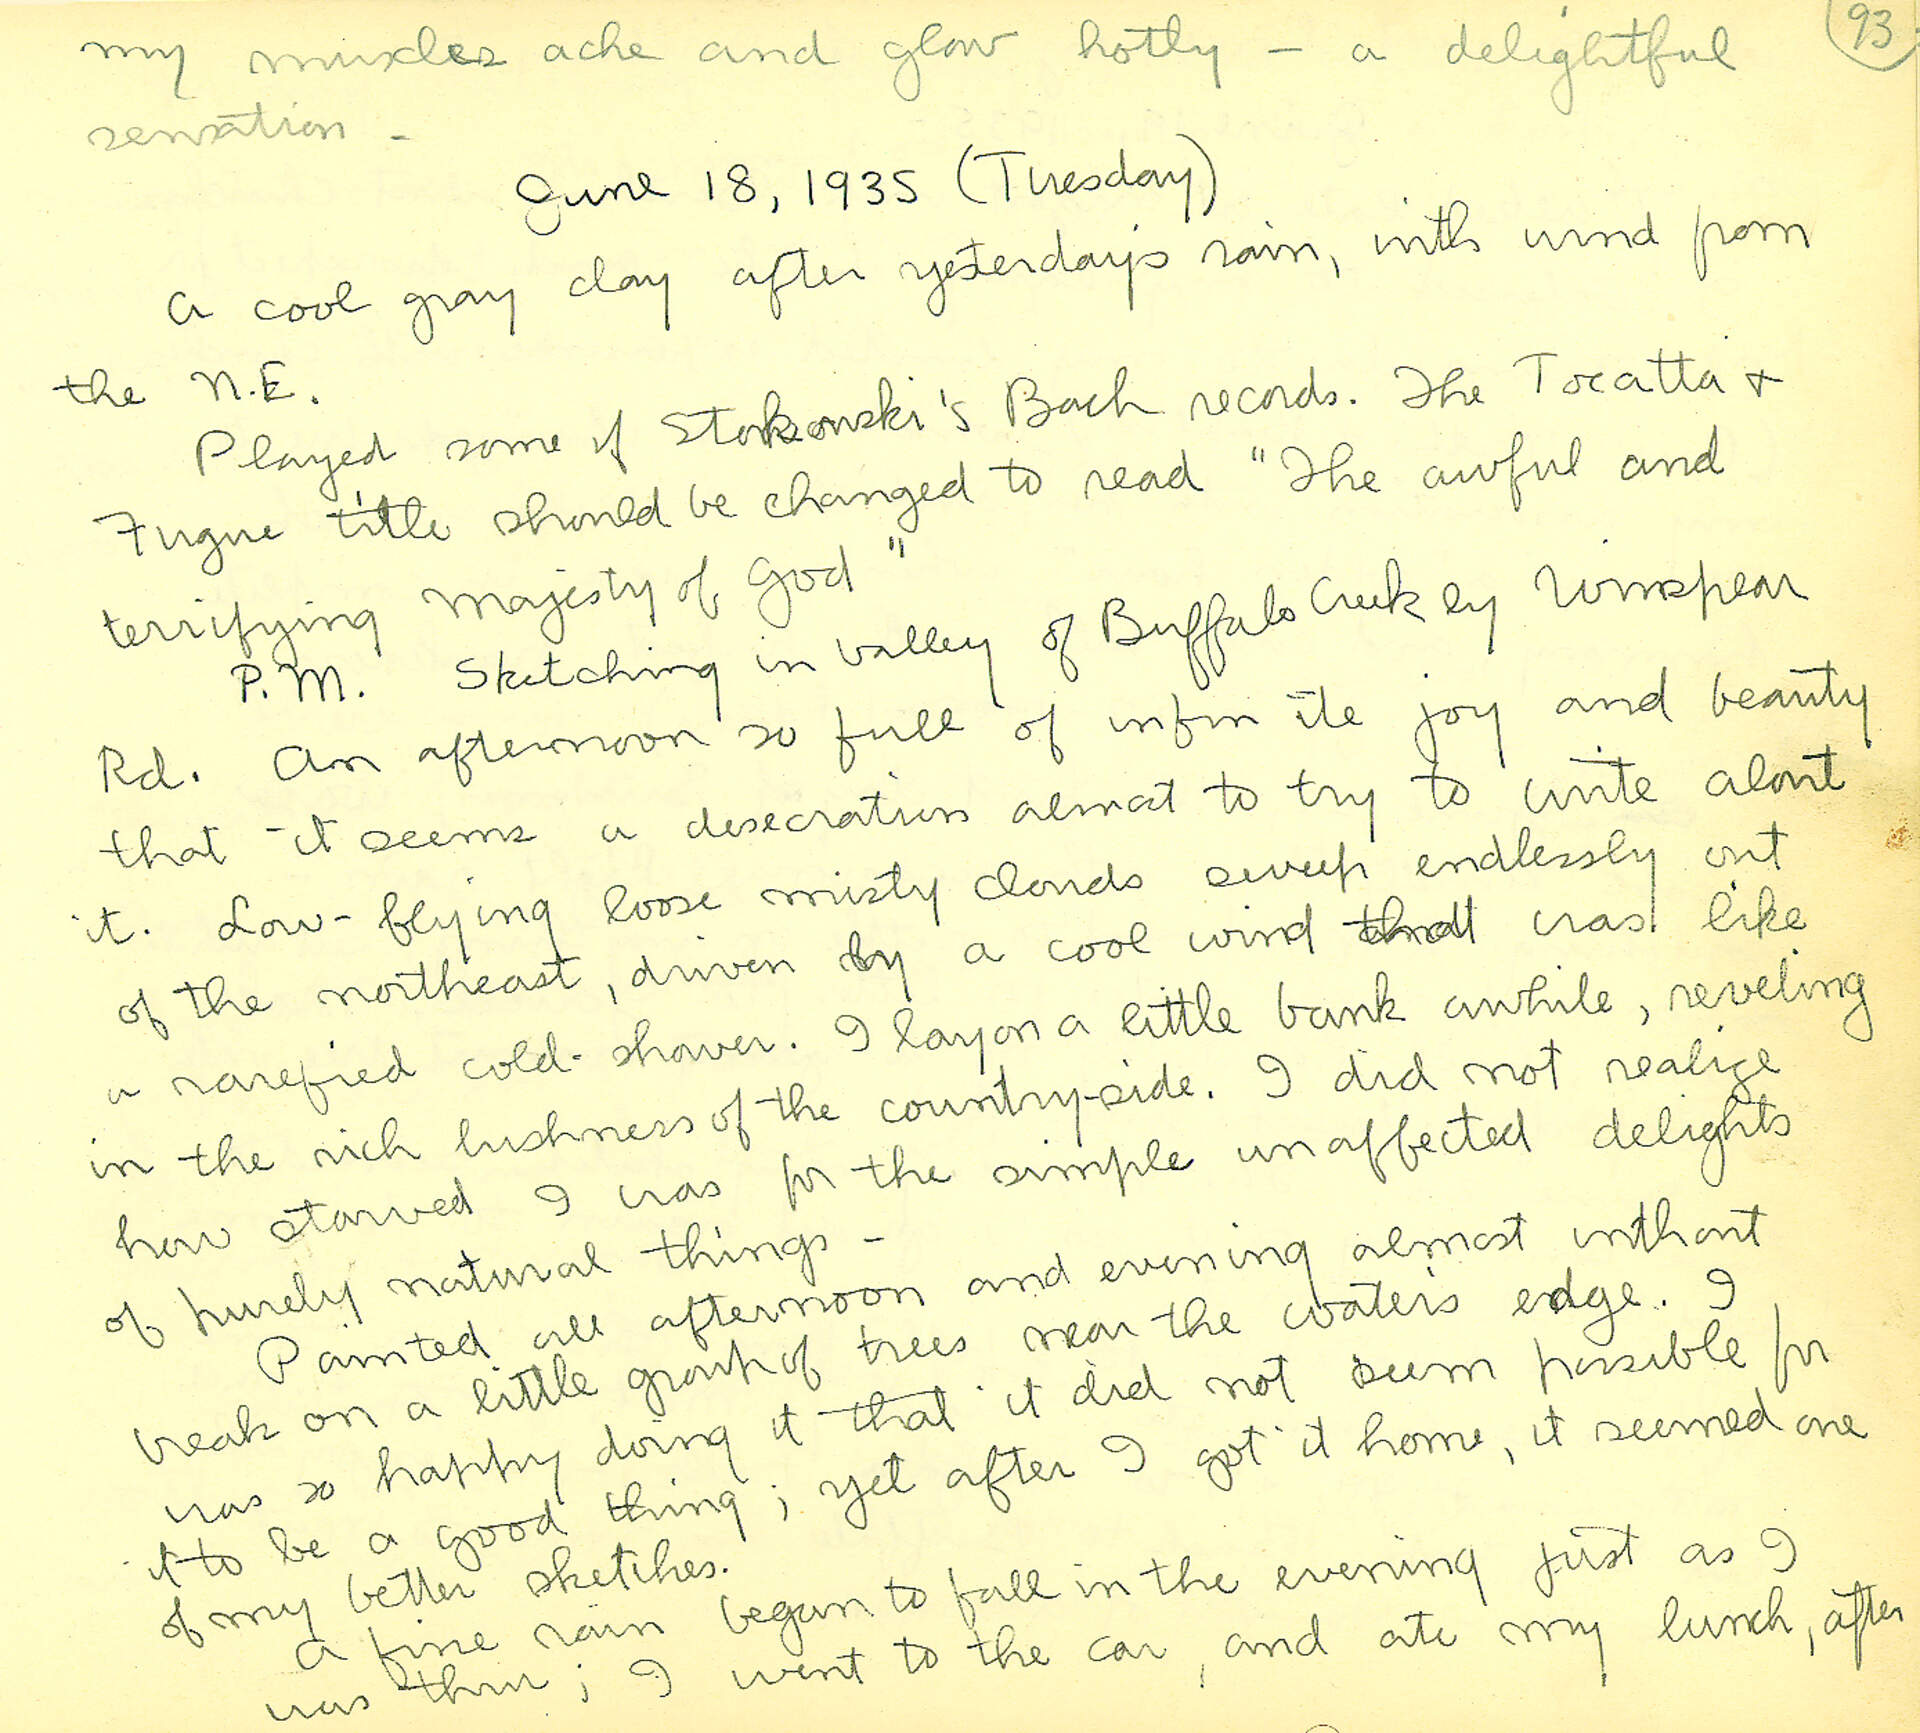 93
my muscles ache and glow hotly – a delightful
sensation –
June 18, 1935 (Tuesday)
A cool gray day after yesterday's rain, with wind from
the N.E.
Played some of Stokowski's Bach records. The Tocatta +
Fugue title should be changed to read "The awful and
terrifying Majesty of God"
P.M. Sketching in valley of Buffalo Creek by Winspear
Rd. An afternoon so full of infinite joy and beauty
that it seems a desecration almost to try to write about
it. Low-flying loose misty clouds sweep endlessly out
of the northeast, driven by a cool wind that was like
a rarefied cold-shower. I lay on a little bank awhile, reveling
in the rich lushness of the country-side. I did not realize
how starved I was for the simple unaffected delights
of purely natural things –
Painted all afternoon and evening almost without
break on a little group of trees near the water's edge. I
was so happy doing it that it did not seem possible for
it to be a good thing; yet after I got it home, it seemed one
of my better sketches.
A fine rain began to fall in the evening just as I
was thru; I went to the car, and ate my lunch, after